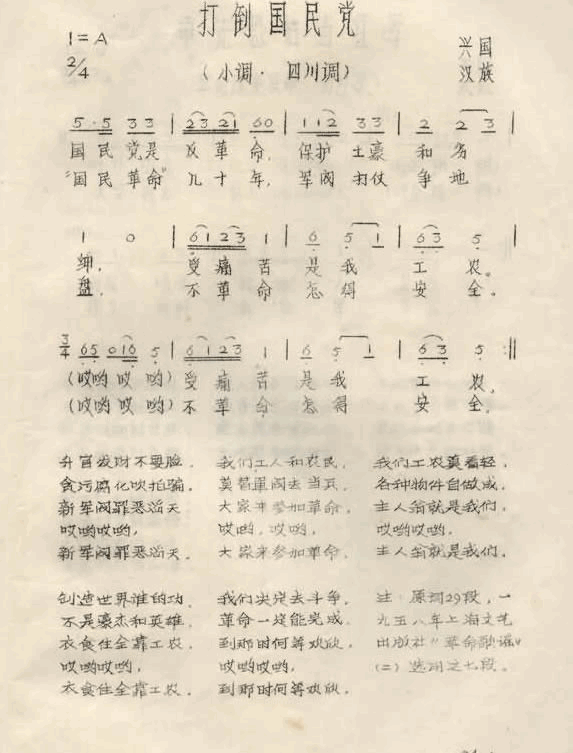 打倒国民党
1=A
2/4
（小调·四川调）
兴国
汉族
5·5 3 3 | 2 3 2 1 6 0 | 1 1 2 3 3 | 2 2 3 |
国民党是 反革命， 保护土豪 和劣
"国民革命" 几十年， 军阀打仗 争地
1 0 | 6 1 2 3 1 | 6 5 1 | 6 3 5 |
绅， 受痛苦 是我 工农。
盘， 不革命 怎得 安全。
3/4 6 5 0 1 6 5 | 6 1 2 3 1 | 6 5 1 | 6 3 5 :||
（哎哟哎哟）受痛苦 是我 工农，
（哎哟哎哟）不革命 怎得 安全。
升官发财不要脸，
贪污腐化吹拍骗，
新军阀罪恶滔天
哎哟哎哟，
新军阀罪恶滔天。
我们工人和农民，
莫替军阀去当兵，
大家来参加革命，
哎哟，哎哟，
大家来参加革命，
我们工农莫看轻，
各种物件自做成，
主人翁就是我们，
哎哟哎哟，
主人翁就是我们。
创造世界谁的功，
不是豪杰和英雄，
衣食住全靠工农，
哎哟哎哟，
衣食住全靠工农。
我们决定去斗争，
革命一定能完成，
到那时何等欢欣，
哎哟哎哟，
到那时何等欢欣。
注：原词29段，一
九五八年上海文艺
出版社"革命歌谣"
（二）选用之七段。